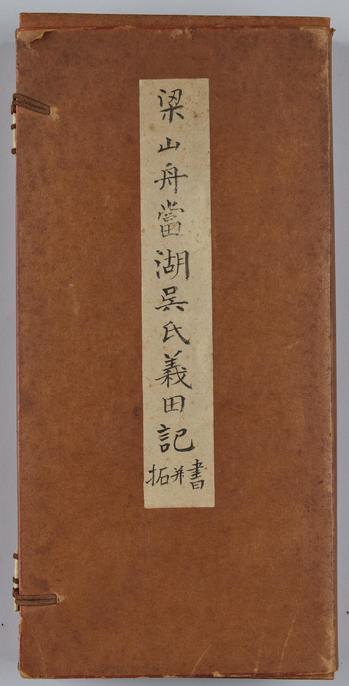 梁山舟當湖吳氏義田記
書并拓